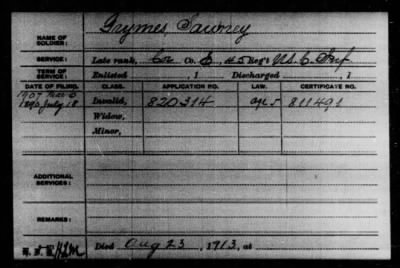 Grymes, Sawney
NAME OF SOLDIER:
SERVICE: Late rank, Cor Co. D, 45 Reg't U.S.C. Inf
TERM OF SERVICE: Enlisted , 1 Discharged , 1
DATE OF FILING. CLASS. APPLICATION NO. LAW. CERTIFICATE NO.
1907
1890 July 18 Invalid, 820314 811491
Widow,
Minor,
ADDITIONAL SERVICES:
REMARKS:
Died Aug 23, 1913, at